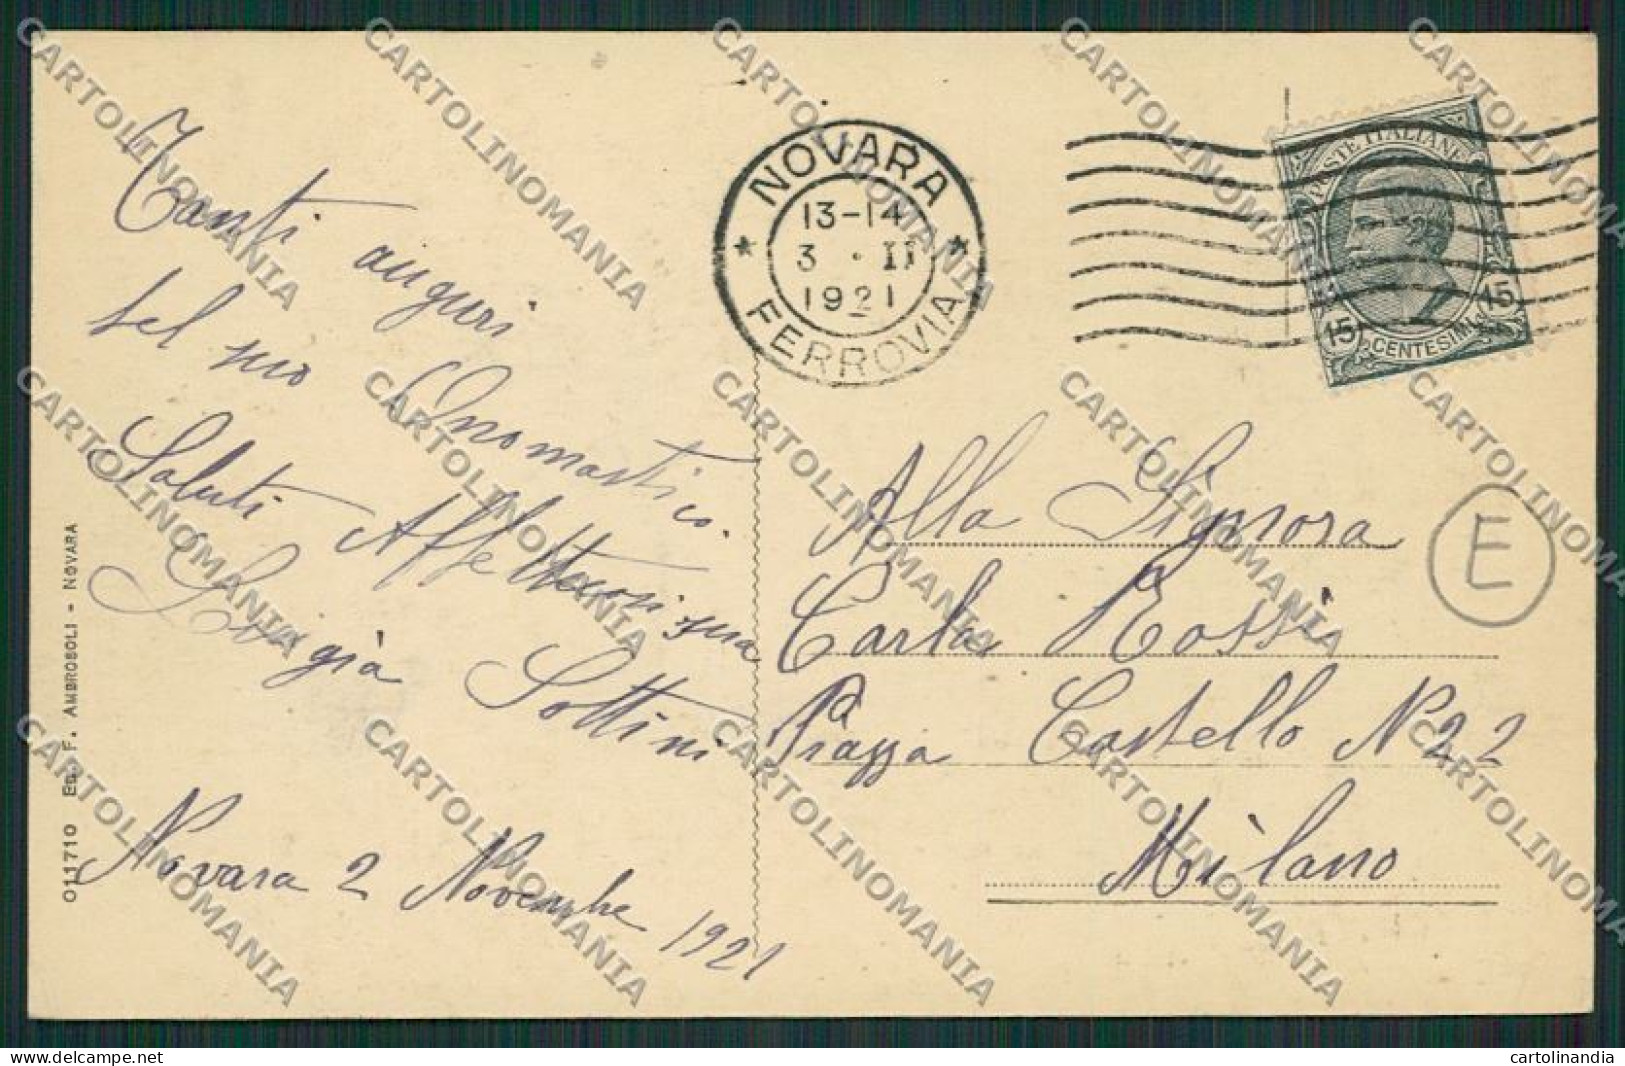 Tanti auguri
pel suo Onomastico.
Saluti Affettuosissima
Luigià Sottini
Novara 2 Novembre 1921
011710 Ed. F. AMBROSOLI - NOVARA
NOVARA
13-14
3 · II
1921
FERROVIA
POSTE ITALIANE
15 CENTESIMI 15
Alla Signora
Carla Rossi
Piazza Castello N 22
Milano
E
CARTOLINOMANIA
delcampe.net
cartolinandia